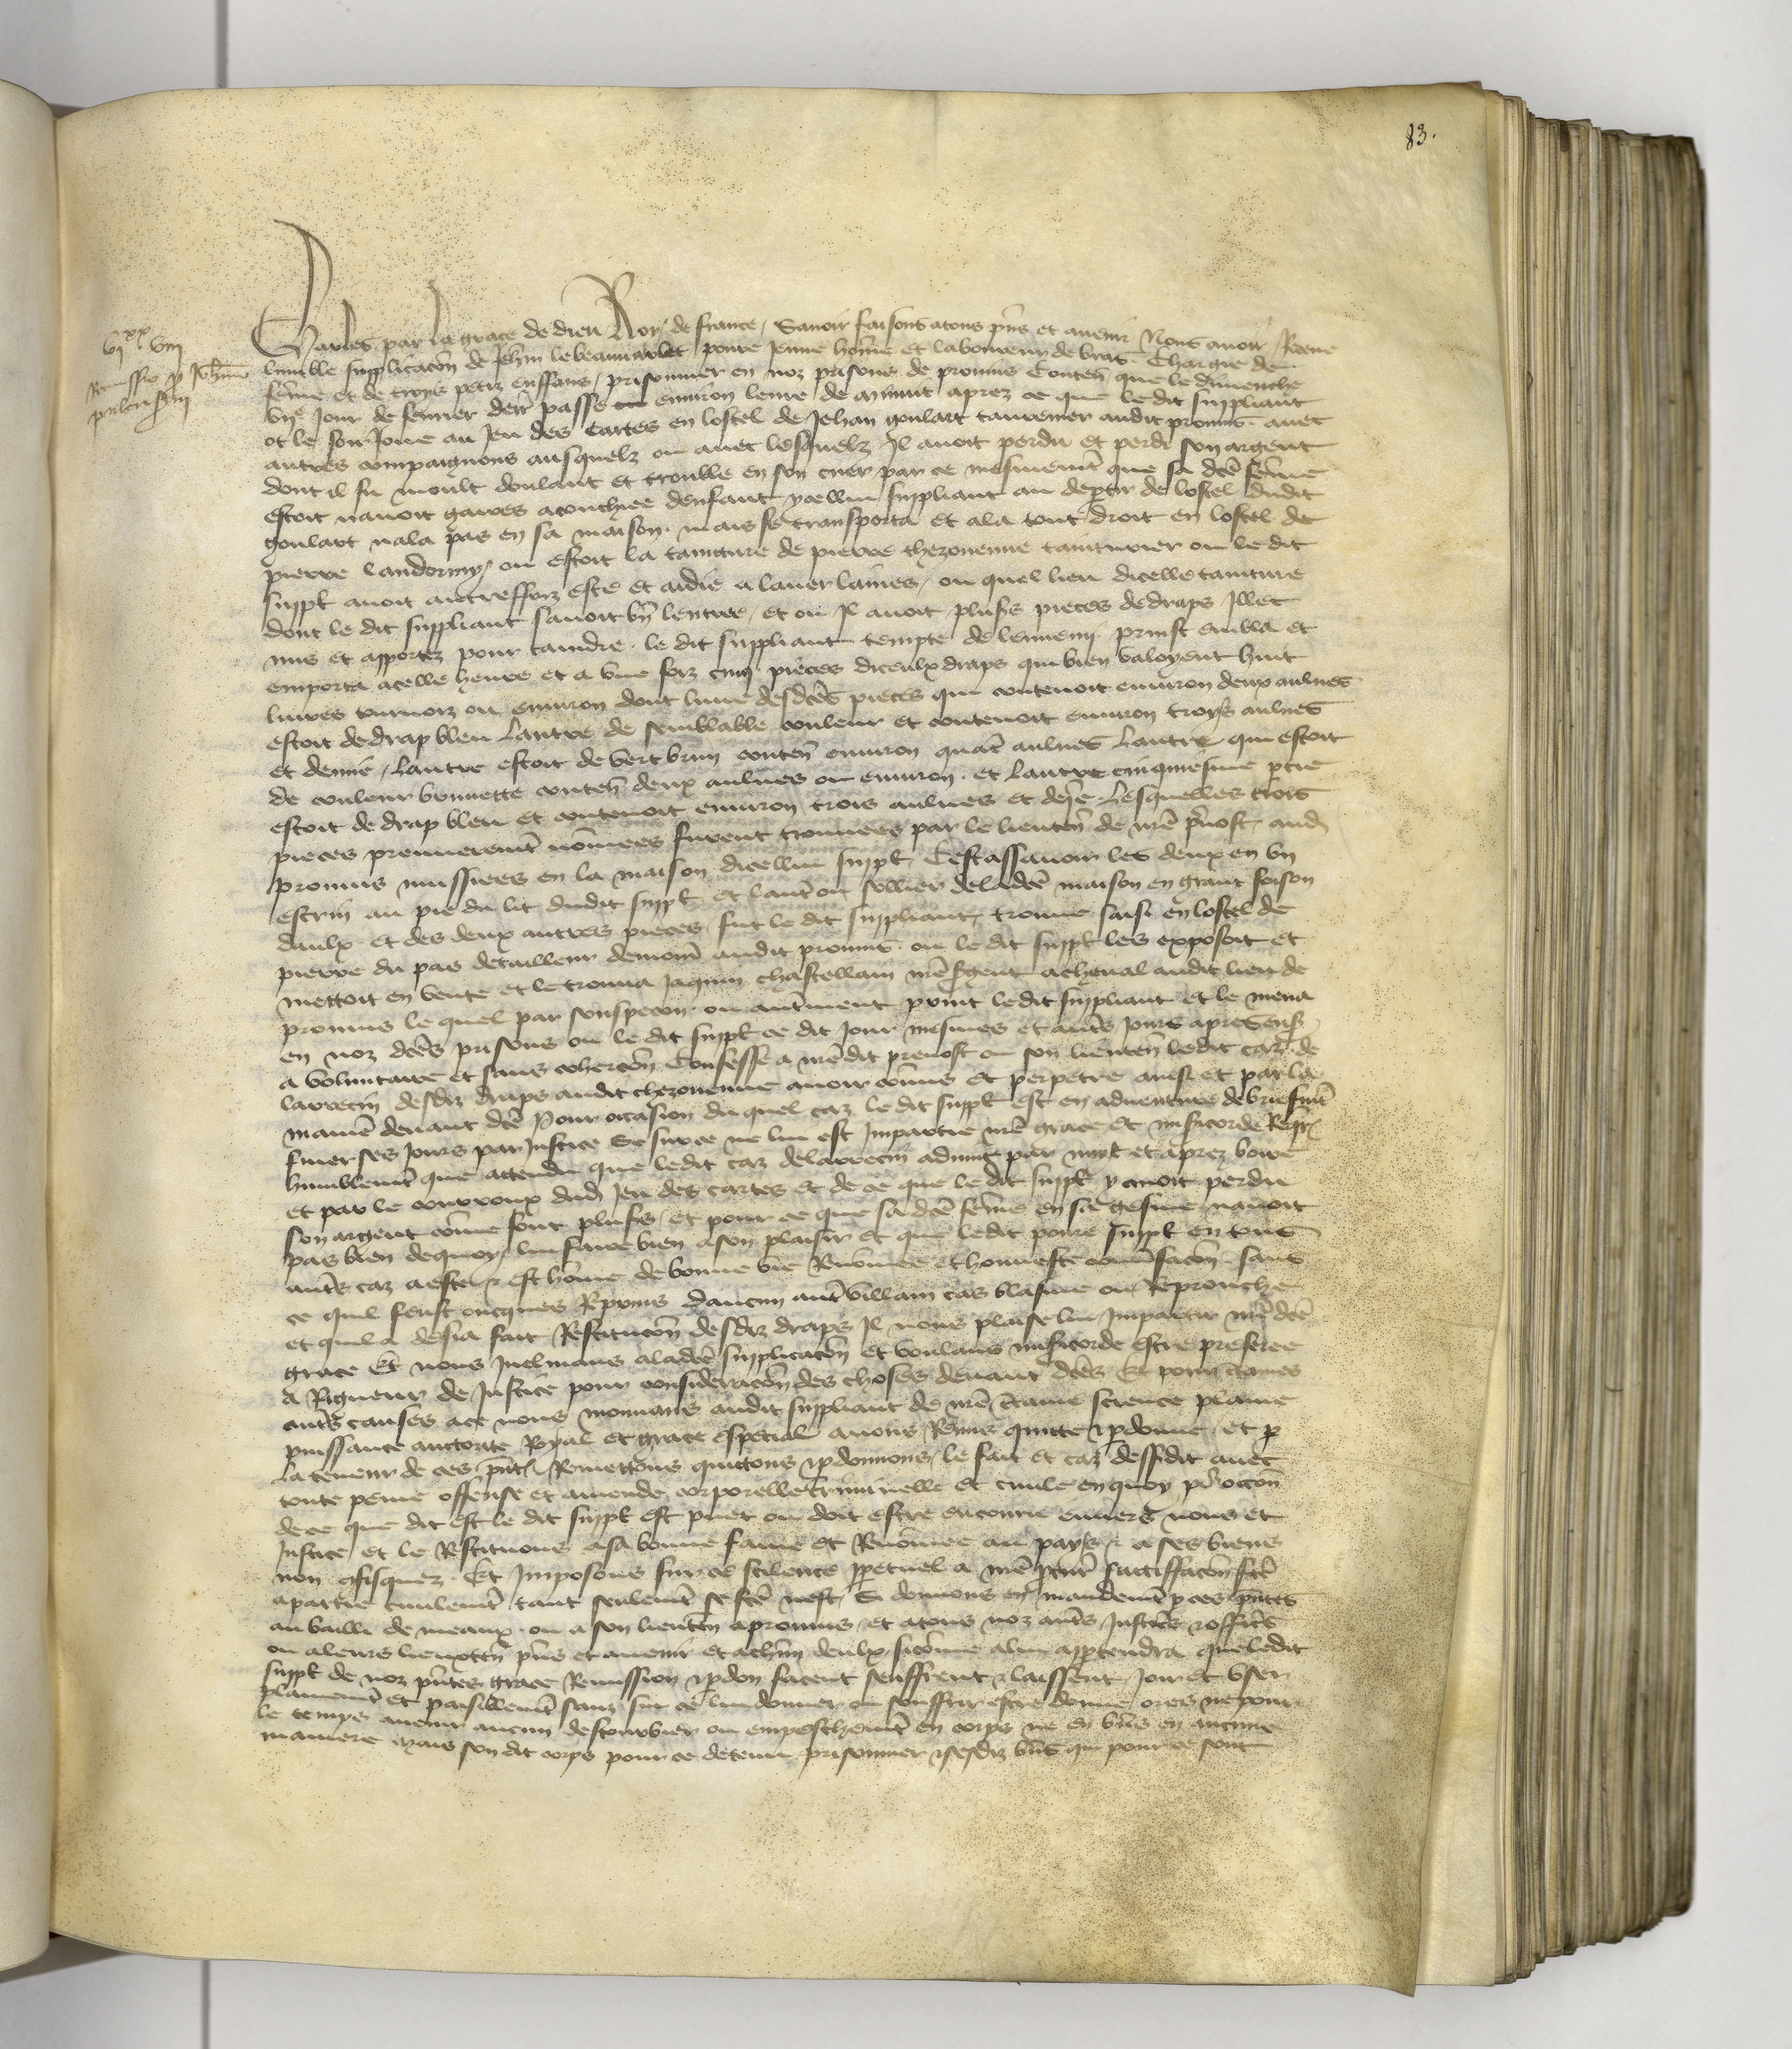 83.
vixx viii
Remissio p Johanne
Charles par la grace de dieu Roy de france, Savoir faisons a tous pñs et avenir Nous avoir Receue
lumble supplicacõn de Jehan le beauvarlet povre Jeune hõme et laboureur de bras Chargie de
fẽme et de troys petiz enffans, prisonnier en noz prisons de provins Conteñ que le dimenche
viie Jour de fevrier derr̃ passe environ leure de mienuit aprez ce que le dit suppliant
ot le soir Joue au Jeu des Cartes en lostel de Jehan goulart tavernier audit provins avec
autres compaignons ausquelz ou avec lesquelz Il avoit perdu et perdi son argent
dont il fu moult doulant et trouble en son cuer par ce mesmemẽt que sa dcẽ fẽme
estoit navoit gaires acouchiee denfant ycellui suppliant au deptir de lostel dudit
goulart nala pas en sa maison. mais se transporta et ala tout droit en lostel de
pierre landormy, ou estoit la tainture de pierre thezonenne tainturier ou le dit
supplt avoit autreffoiz este et aidie a laver laines, ou quel lieu dicelle tainture
dont le dit suppliant savoit bñ lentree, et ou Il avoit plusrs pieces de draps Illec
mis et apportez pour taindre. le dit suppliant tempte de lennemy prinst embla et
emporta a celle heure et a une foiz cinq pieces diceulx draps qui bien valoyent huit
livres tournoiz ou environ dont lune desdcẽs pieces qui contenoit environ deux aulnes
estoit de drap bleu Lautre de semblable couleur et contenoit environ troys aulnes
et demie, Lautre estoit de vert brun conteñ environ quatr̃ aulnes Lautre qui estoit
de couleur brunette conteñ deux aulnes ou environ. et Lautre cinquiesme pcie
estoit de drap bleu et contenoit environ trois aulnes et deỹe. Lesquelles trois
pieces premieremẽt nõmees furent trouvees par le lieuteñ de nr̃e pvost aud
provins mussiees en la maison dicellui supplt. Cestassavoir les deux en un
escrin au pie du lit dudit supplt et lautr̃ ou sollier de ladcẽ maison en grant foison
daulx. et des deux autres pieces fut le dit suppliant trouve saisi en lostel de
pierre du pas detailleur demour̃ audit provins. ou le dit supplt les exposoit et
mettoit en vente et le trouva Jaquin chastellain nr̃e sgent a cheval audit lieu de
provins le quel par souspecon ou autrement print ledit suppliant et le mena
en noz dcẽs prisons ou le dit supplt ce dit Jour mesmes et autrs Jours apres ens
a voluntaire et sans cohercõn Confesse a nr̃edit prevost ou son lieuteñ ledit caz de
larrecin desdiz draps audit thezonenne avoir cõmis et perpetre ainsi et par la
maniẽ devant dcẽ Pour occasion du quel caz le dit supplt est en adventure de briefmẽt
finer ses Jours par Justice Se sur ce ne lui est Impartie nr̃e grace et misericorde Reqr̃
humblemẽt que attendu que ledit caz de larrecin advint par nuyt et aprez boire
et par le courroux dud Jeu des cartes et de ce que le dit supplt y avoit perdu
son argent cõme font plusrs, et pour ce que sa dcẽ fẽme en sa gesine navoit
pas bien dequoy, lui faire bien a son plaisir et que ledit povre supplt en tous
autrs caz a este & est hõme de bonne vie Renõmee et honneste conversacõn. sans
ce quil feust oncques Repris daucun autr̃ villain cas blasme ou Reprouche
et quil a desia fait Restitucõn desdiz draps Il nous plaise lui Impartir nr̃e dcẽ
grace Et nous Inclinans a ladcẽ supplicacõn et voulans misericorde estre preferee
a Rigueur de Justice pour consideracõn des choses devant dcẽs Et pour ctaines
autrs causes a ce nous mouvans audit suppliant de nr̃e ctaine science plaine
puissance auctorite Royal et grace especial avons Remis quitte & pdonne, et p
la teneur de ces pñtes Remettons quittons & pdonnons, le fait et caz dessusdit avec
toute peine offense et amende corporelle Criminelle et civile en quoy pr occõn
de ce que dit est le dit supplt est puet ou doit estre encouru envers nous et
Justice et le Restituons a sa bonne fame et Renõmee au pays & a ses biens
non cfisquez. Et Imposons sur ce scilence ppetuel a nr̃e pcur̃ sattiffacõn fcẽ
a partie civilemẽt tant seulemẽt se fcẽ nest, Si donnons eñ mandemẽt p ces pñtes
au bailli de meaux. ou a son lieuteñ a provins et a tous noz autrs Justicĩrs & officĩrs
ou a leurs lieuxteñ pñs et avenir et a chũn deulx sicõme a lui apptendra que ledit
supplt de noz pñtes grace Remission & pdon facent seuffrent & laissent Joir et user
plainemẽt et paisiblemẽt sanz sur ce lui donner ou souffrir estre donne ores ne pour
le temps avenir aucun destourbier ou empeschemẽt en corps ne en bñs en aucune
maniere Mais son dit corps pour ce detenu prisonnier & sesdiz bñs qui pour ce sont